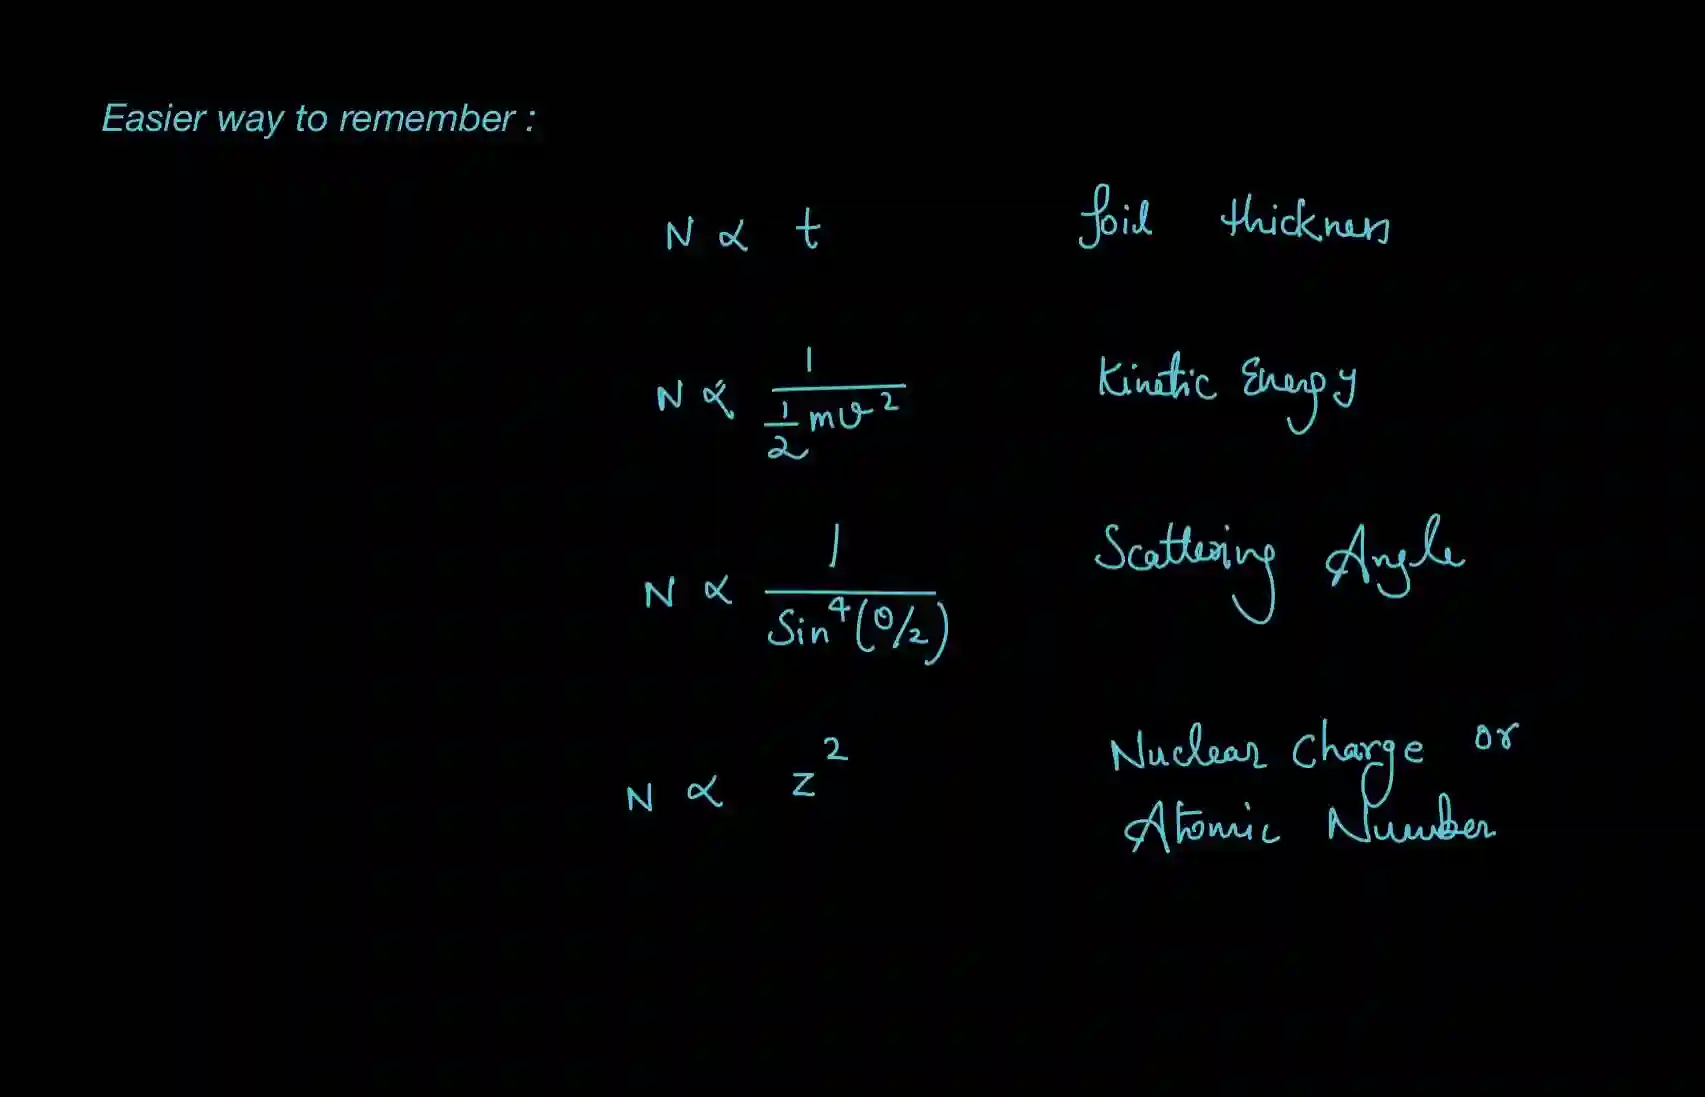 Easier way to remember :
N ∝ t foil thickness
N ∝ 1/(1/2 mv²) Kinetic Energy
N ∝ 1/Sin⁴(θ/2) Scattering Angle
N ∝ z² Nuclear Charge or
Atomic Number